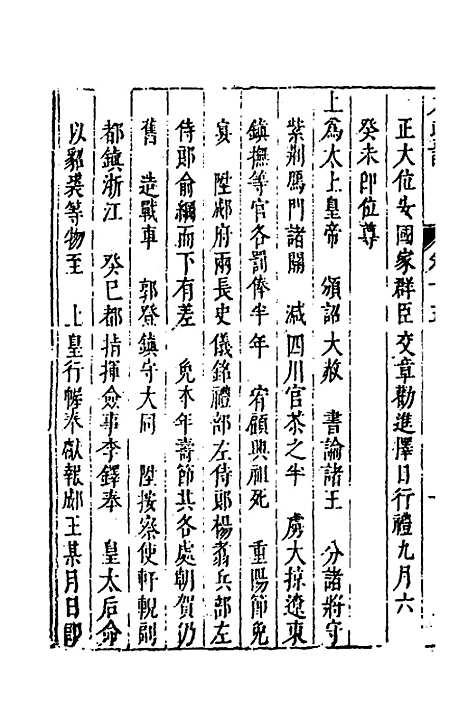 正大位安國家群臣交章勸進擇日行禮九月六
癸未即位尊
上爲太上皇帝 頒詔大赦 書諭諸王 分諸將守
紫荆鴈門諸關 減四川官茶之半 虜大掠遼東
鎮撫等官各罰俸半年 宥顧興祖死 重陽節免
宴 陞郕府兩長史儀銘禮部左侍郎楊翥兵部左
侍郎俞綱而下有差 免本年壽節共各處朝賀仍
舊 造戰車 郭登鎮守大同 陞按察使軒輗副
都鎮浙江 癸巳都指揮僉事李鐸奉 皇太后命
以貂裘等物至 上皇行幄奉獻報郕王某月日即